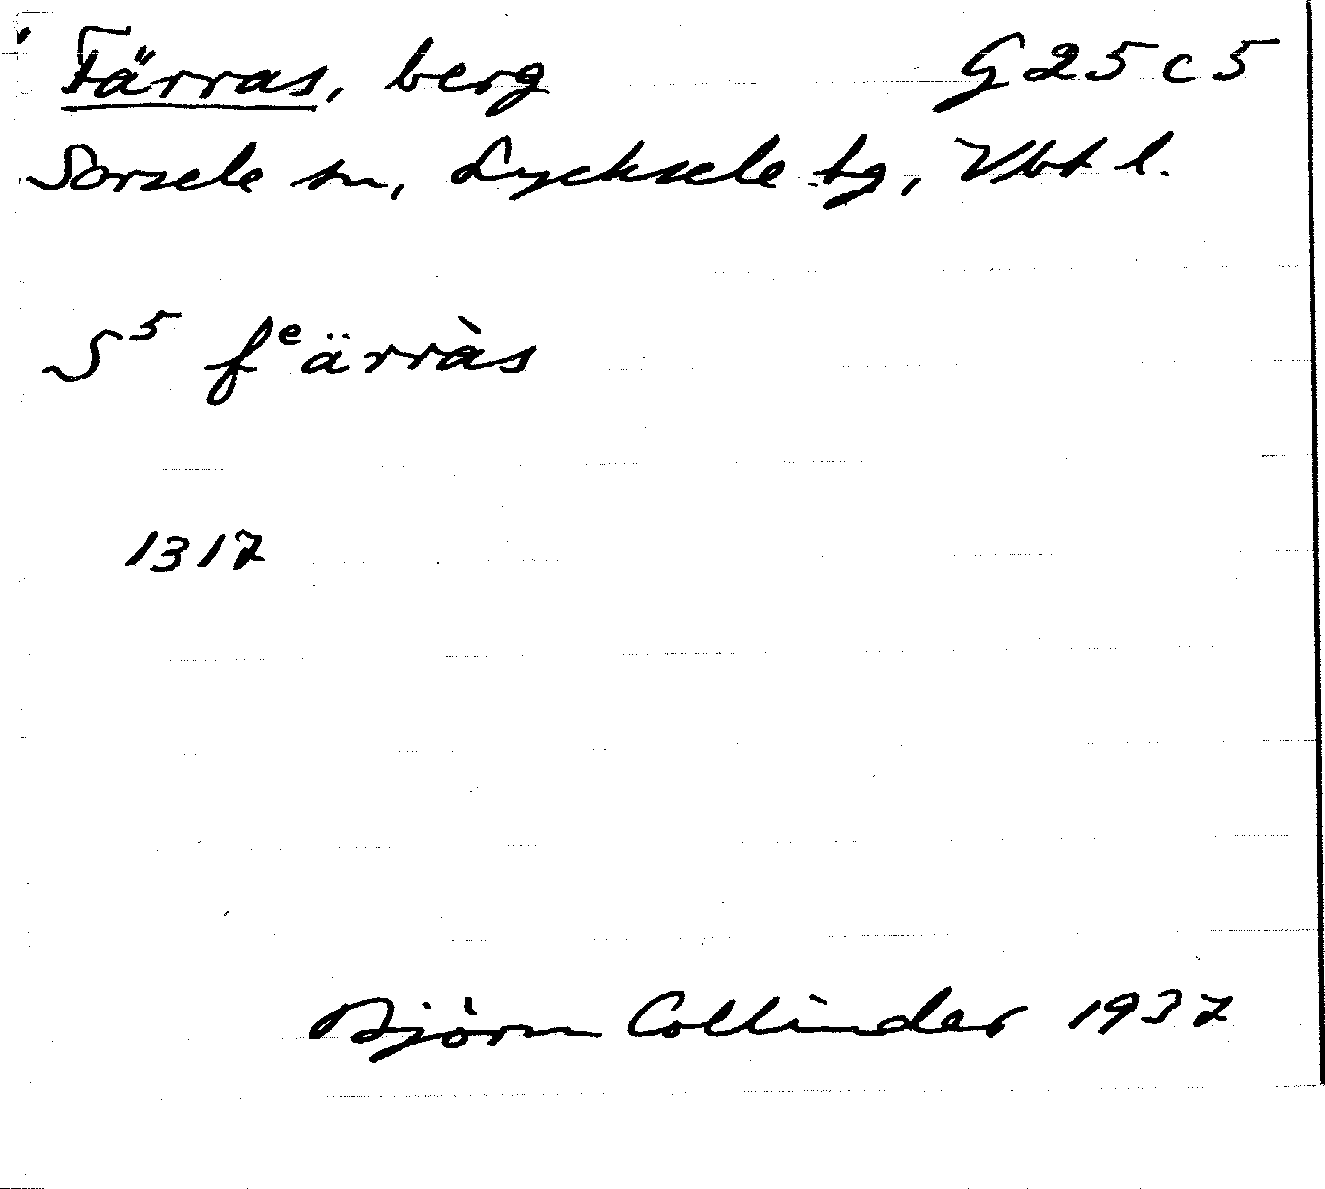 Färras, berg G25c5
Sorsele sn, Lycksele tg, Vbt l.
S⁵ fᵉärràs
1317
Björn Collinder 1937